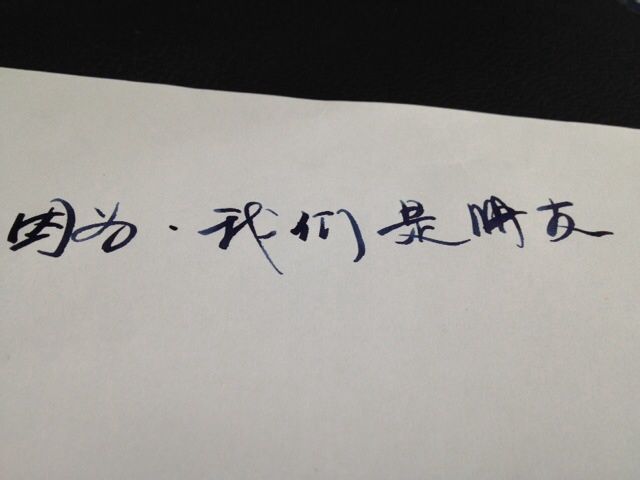 因为·我们是朋友